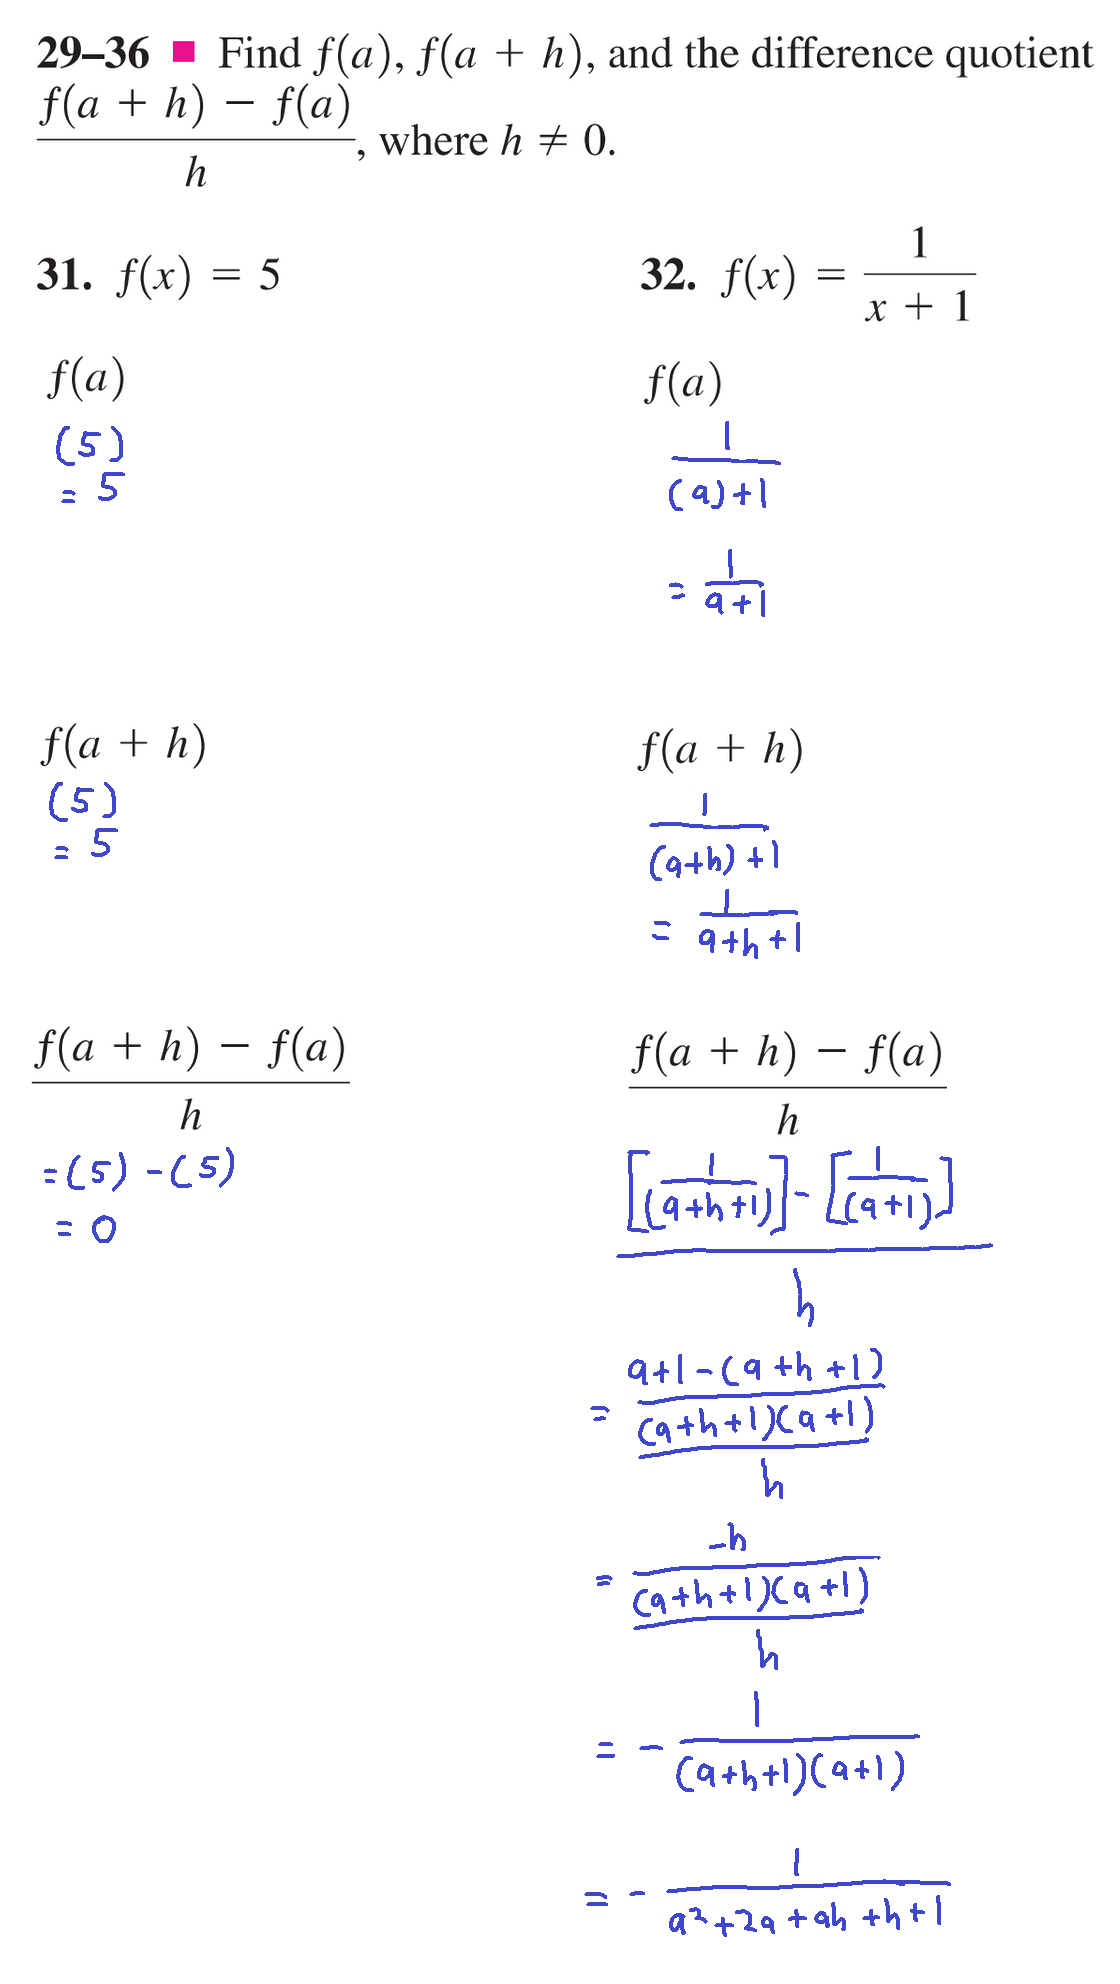 29–36 ■ Find f(a), f(a + h), and the difference quotient
f(a + h) − f(a)
h
, where h ≠ 0.
31. f(x) = 5
f(a)
(5)
= 5
f(a + h)
(5)
= 5
f(a + h) − f(a)
h
=(5) -(5)
= 0
32. f(x) =
1
x + 1
f(a)
1
(a)+1
=
1
a+1
f(a + h)
1
(a+h) +1
=
1
a+h+1
f(a + h) − f(a)
h
[1/(a+h+1)] - [1/(a+1)]
h
a+1-(a+h+1)
=
(a+h+1)(a+1)
h
-h
=
(a+h+1)(a+1)
h
1
= -
(a+h+1)(a+1)
1
= -
a²+2a+ah+h+1